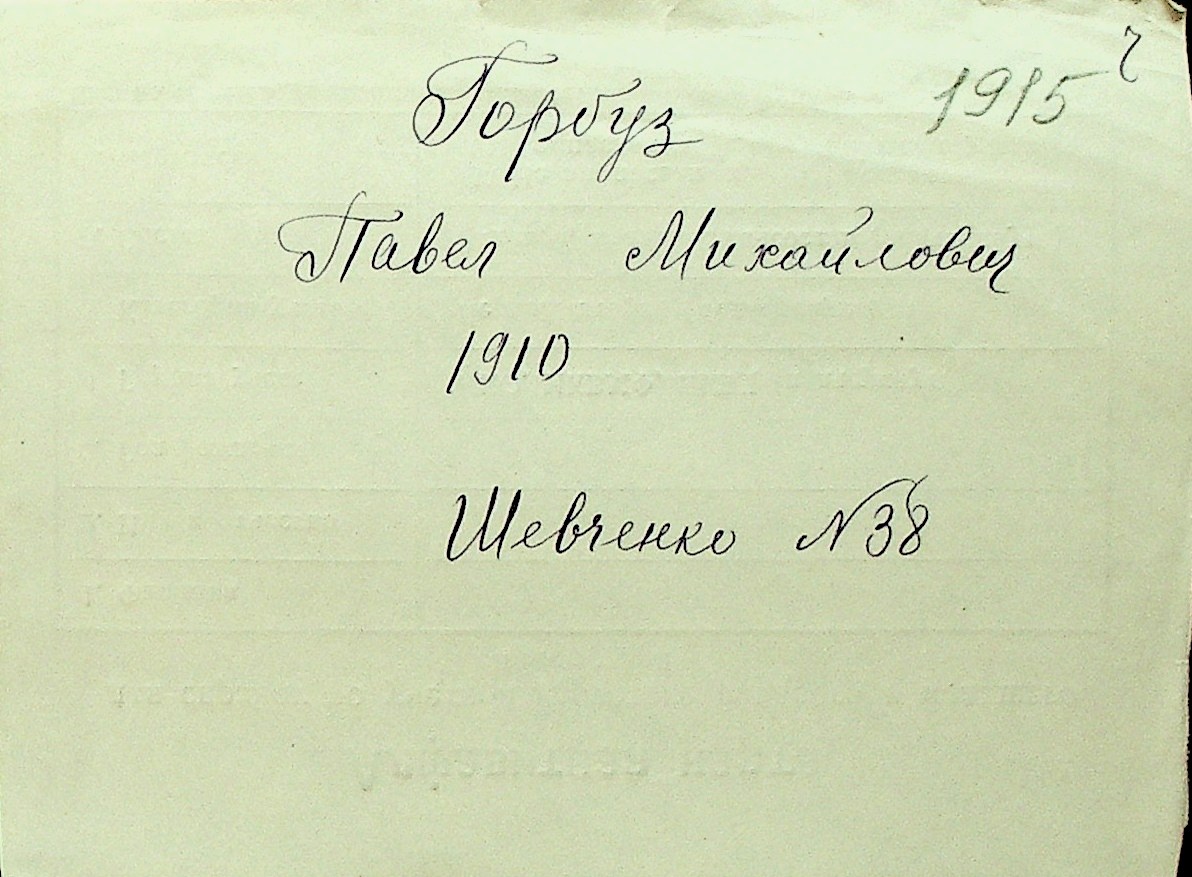 Горбуз 1915
Павел Михайлович
1910
Шевченко №38